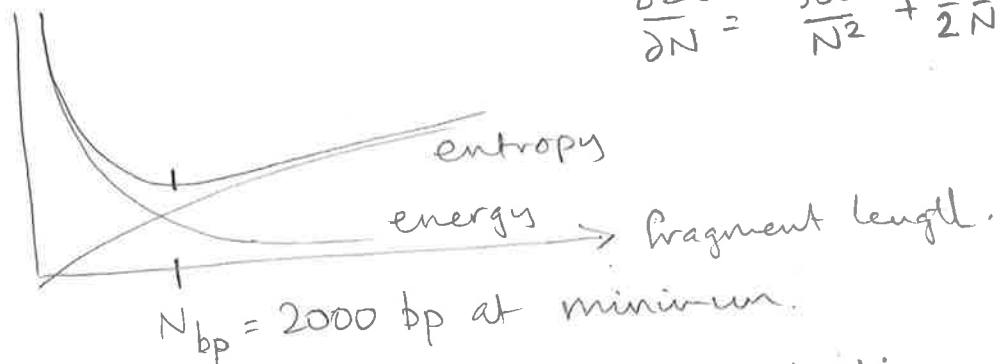 ∂N = N² + 2N
entropy
energy
fragment length.
N_bp = 2000 bp at minimum.